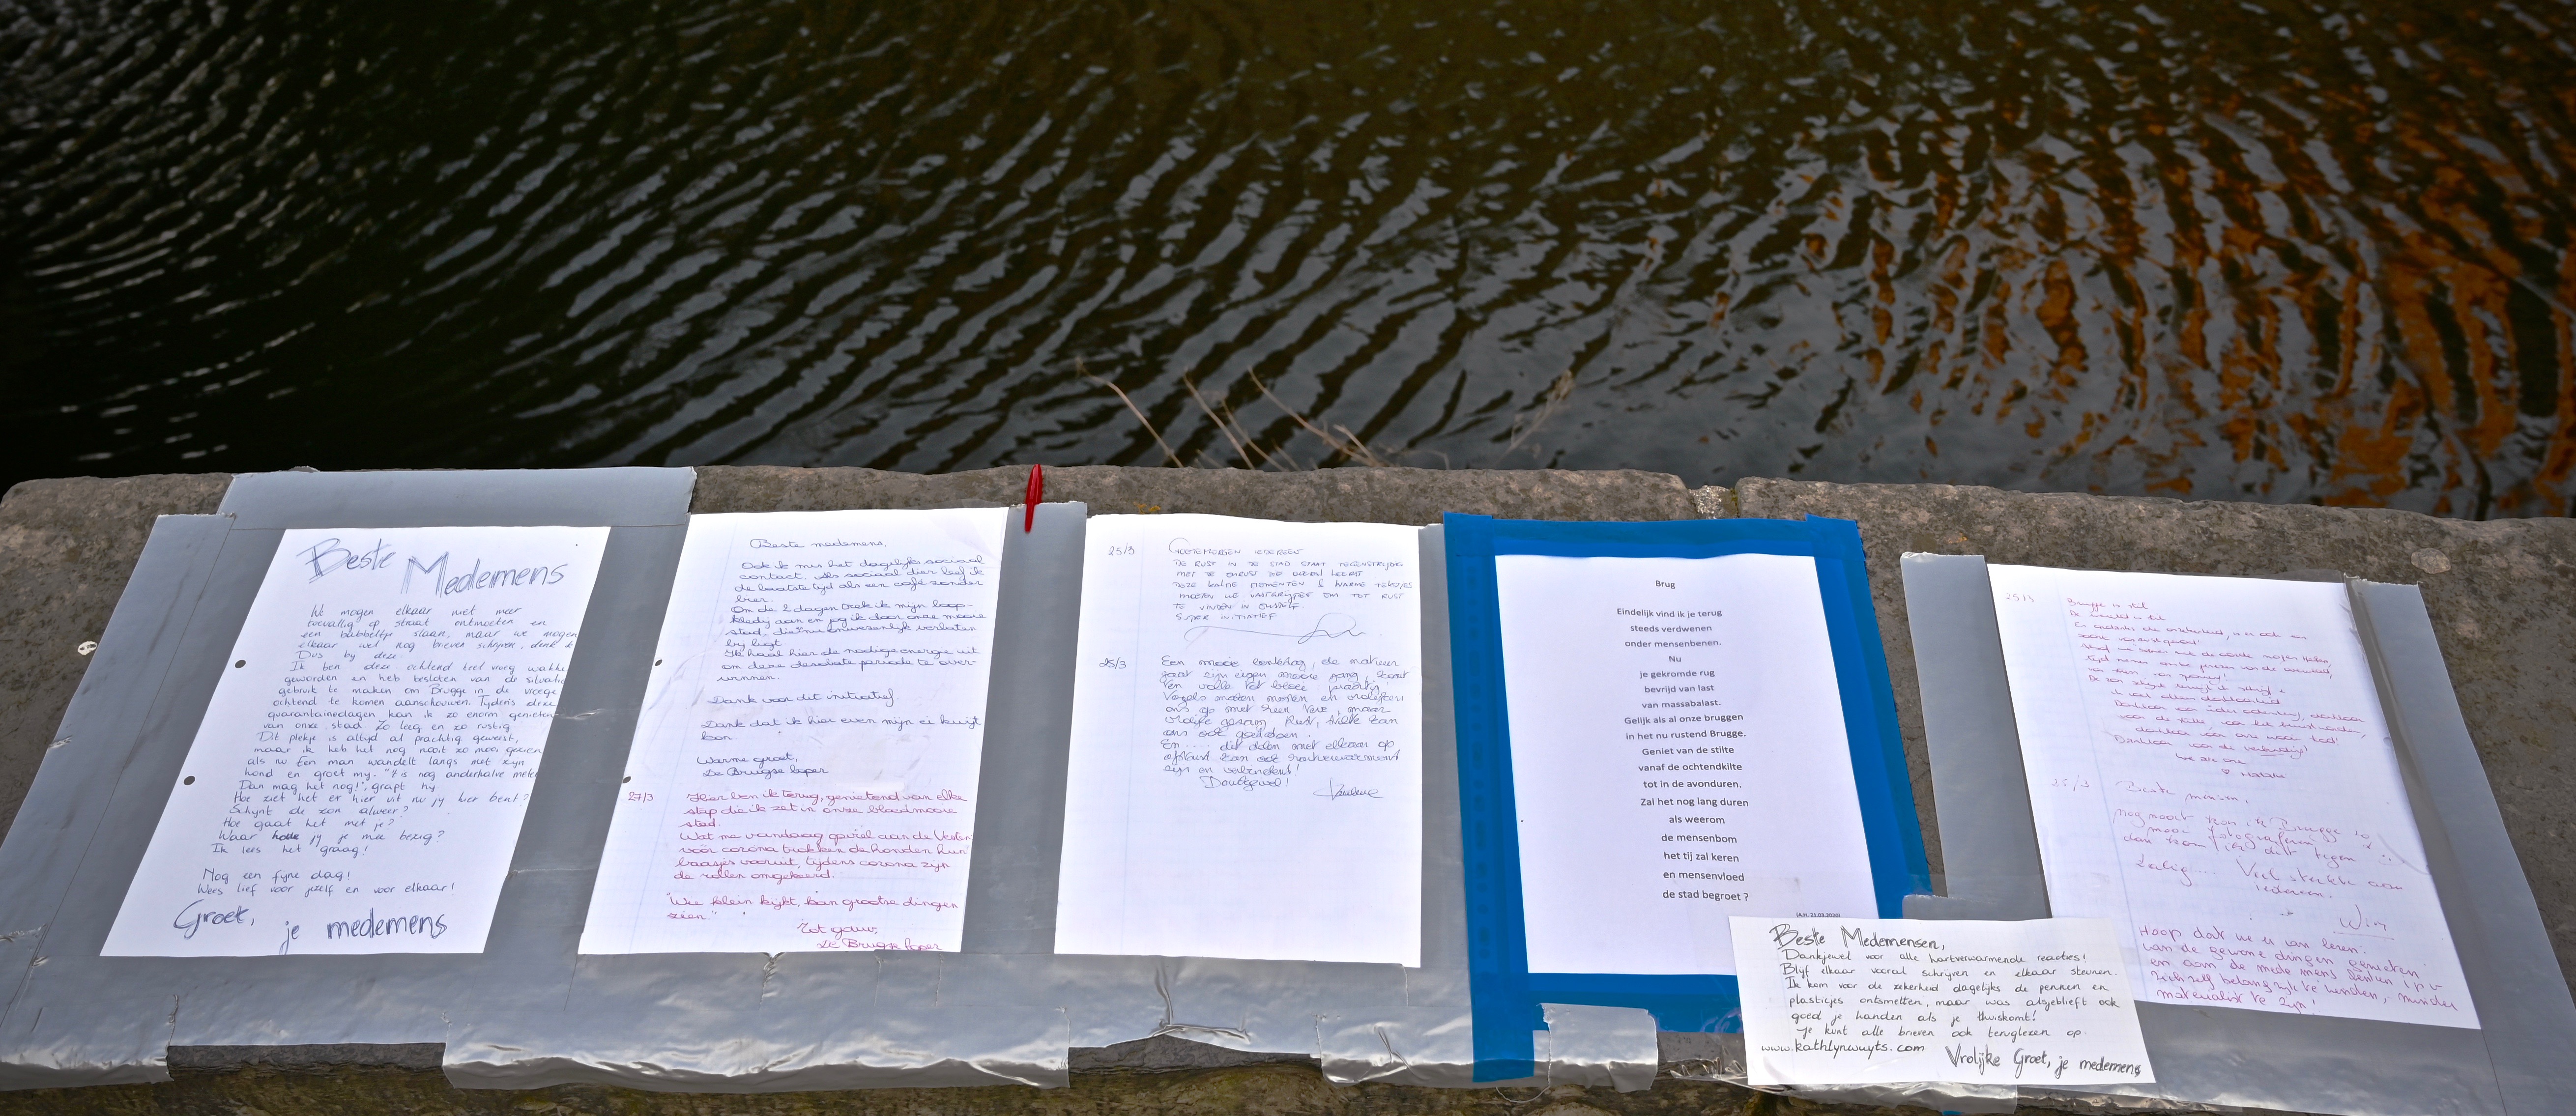 Beste Medemens
We mogen elkaar niet meer
toevallig op straat ontmoeten en
een babbeltje slaan, maar we mogen
elkaar wel nog brieven schrijven, denk
Dus bij deze.
Ik ben deze ochtend heel vroeg
geworden en heb besloten van de
gebruik te maken om Brugge in de vroege
ochtend te komen aanschouwen. Tijdens deze
quarantainedagen kan ik zo enorm genieten
van onze stad. Zo leeg en zo rustig
Dit plekje is altijd al prachtig geweest,
maar ik heb het nog nooit zo mooi gezien
als nu Een man wandelt langs met zijn
hond en groet mij. "'t is nog anderhalve meter
Dan mag het nog!", grapt hij
Hoe ziet het er hier uit nu jij hier bent?
Schijnt de zon alweer?
Hoe gaat het met je?
Waar hou jij je mee bezig?
Ik lees het graag!
Nog een fijne dag!
Wees lief voor jezelf en voor elkaar!
Groet,
je medemens
Beste medemens,
Ook ik mis het dagelijks sociaal
contact. Als sociaal dier leef ik
de laatste tijd als een café zonder
bier.
Om de 2 dagen trek ik mijn loop-
kledij aan en jog ik door onze mooie
stad, die nu onwezenlijk verlaten
bij ligt
Ik haal hier de nodige energie uit
om deze desolate periode te over-
winnen.
Dank voor dit initiatief.
Dank dat ik hier even mijn ei kwijt
kon.
Warme groet,
De Brugse loper
27/3 Hier ben ik terug, genietend van elke
stap die ik zet in onze bloedmooie
stad.
Wat me vandaag opviel aan de Vesten
vóór corona trokken de honden hun
baasjes vooruit, tijdens corona zijn
de rollen omgekeerd.
"Wie klein kijkt, kan grootse dingen
zien."
Tot gauw,
De Brugse loper
25/3 GOEIEMORGEN IEDEREEN
DE RUST IN DE STAD STAAT TEGENSTRIJDIG
MET DE ONRUST DIE HEERST
DEZE KALME MOMENTEN & WARME TEKSTJES
MOETEN WE VASTGRIJPEN OM TOT RUST
TE VINDEN IN ONSZELF.
SUPER INITIATIEF
25/3 Een mooie lentedag, de natuur
gaat zijn eigen mooie gang, zoals
ten volle tot besef, prachtig.
Vogels maken nesten en vrolijken
ons op met hun vrolijk gezang. Rust, stilte kan
ons ook goed doen.
En ... dit delen met elkaar op
afstand kan ook hartverwarmend
zijn en verbindend!
Dankjewel!
Brug
Eindelijk vind ik je terug
steeds verdwenen
onder mensenbenen.
Nu
je gekromde rug
bevrijd van last
van massabalast.
Gelijk als al onze bruggen
in het nu rustend Brugge.
Geniet van de stilte
vanaf de ochtendkilte
tot in de avonduren.
Zal het nog lang duren
als weerom
de mensenbom
het tij zal keren
en mensenvloed
de stad begroet ?
(A.H. 21.03.2020)
Beste Medemensen,
Dankjewel voor alle hartverwarmende reacties!
Blijf elkaar vooral schrijven en elkaar steunen.
Ik kom voor de zekerheid dagelijks de pennen en
plastiejes ontsmetten, maar was alsjeblieft ook
goed je handen als je thuiskomt!
Je kunt alle brieven ook teruglezen op
www.kathlynwuyts.com Vrolijke Groet, je medemens
25/3 Brugge is stil
De wereld is stil
25/3 Beste mensen,
nog nooit kon ik Brugge zo
mooi fotograferen,
dan kom ik dit tegen
Zalig.... Veel sterkte aan
iedereen.
Wim
Hoop dat we er van leren:
van de gewone dingen genieten
en aan de mede mens denken i.p.v
zichzelf belangrijk te vinden, minder
materialist te zijn!